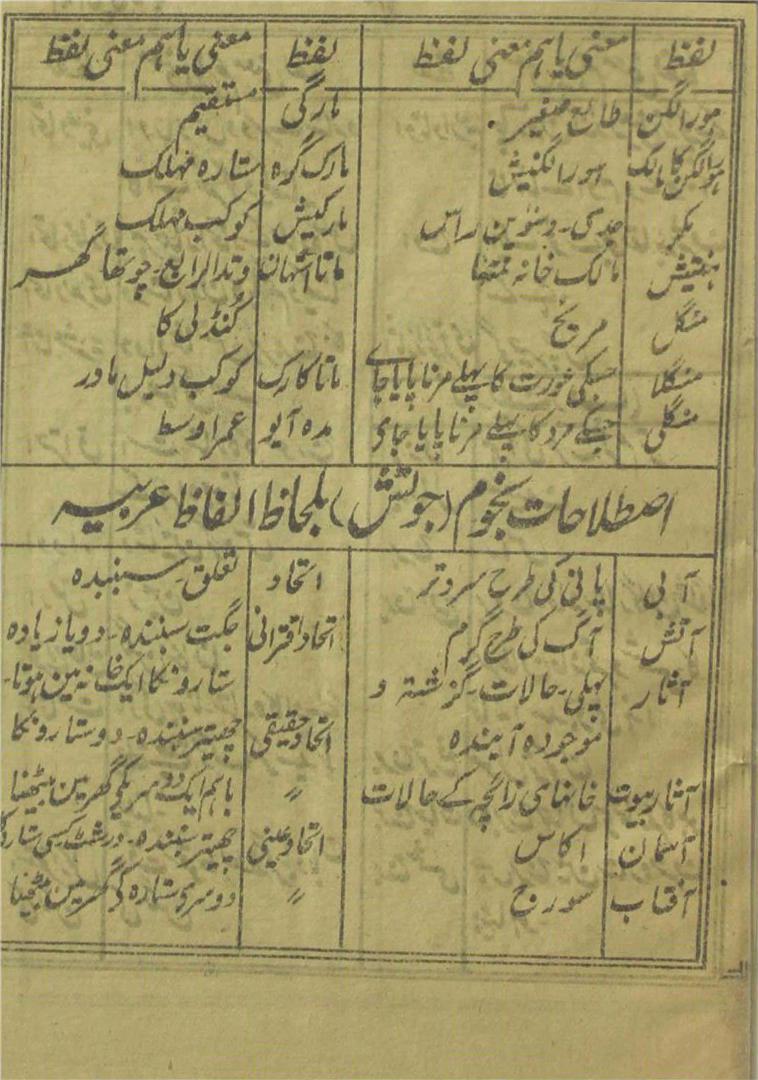 لفظ معنی یا ہم معنی لفظ لفظ معنی یا ہم معنی لفظ
ہورالگن طالع صغیر۔ مارگی مستقیم
ہورالگن کا مالک ہورالگنیش مارک گرہ ستارہ مہلک
مکر جدی۔ دسویں راس مارکیش کوکب مہلک
ہفتیش مالک خانہ ماتا استہان وتد الرابع۔ چوتھا گھر
منگل مریخ کنڈلی کا
منگلا جسکی عورت کا پہلے مرنا پایا جاے ماتا کارک کوکب دلیل مادر
منگلی جسکے مرد کا پہلے مرنا پایا جای مدہ آیو عمر اوسط
اصطلاحات نجوم (جوتش) بلحاظ الفاظ عربیہ
آبی پانی کی طرح سرد تر اتحاد تعلق۔ سنبندہ
آتش آگ کی طرح گرم اتحاد اقترانی جگت سنبندہ۔ دو یا زیادہ
آثار پہلی۔ حالات۔ گزشتہ و ستارونکا ایک خانہ مین ہونا۔
موجودہ آیندہ اتحاد حقیقی چھیتر سنبندہ۔ دو ستارونکا
آثار بیوت خانہای زائچہ کے حالات 〃 باہم ایک دوسریکے گھر مین بیٹھنا
آسمان اکاس اتحاد عینی چھیتر سنبندہ۔ درشٹ کسی ستارہ
آفتاب سورج 〃 دوسری ستارہ کے گھر مین بیٹھنا